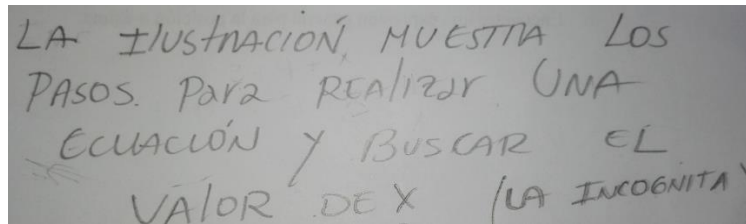 LA ILUSTRACIÓN, MUESTRA LOS
PASOS. Para REAlizar UNA
ECUACIÓN Y BUSCAR EL
VALOR DE X (LA INCOGNITA)